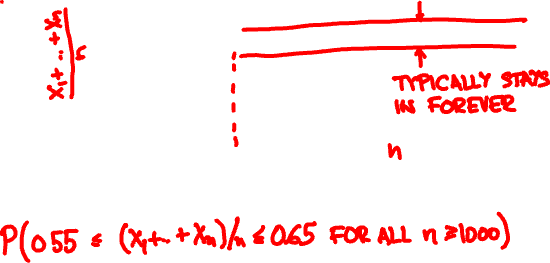 X₁+..+Xₙ
n
TYPICALLY STAYS
IN FOREVER
n
P(0 55 ≤ (X₁+..+Xₙ)/n ≤ 0.65 FOR ALL n ≥1000)